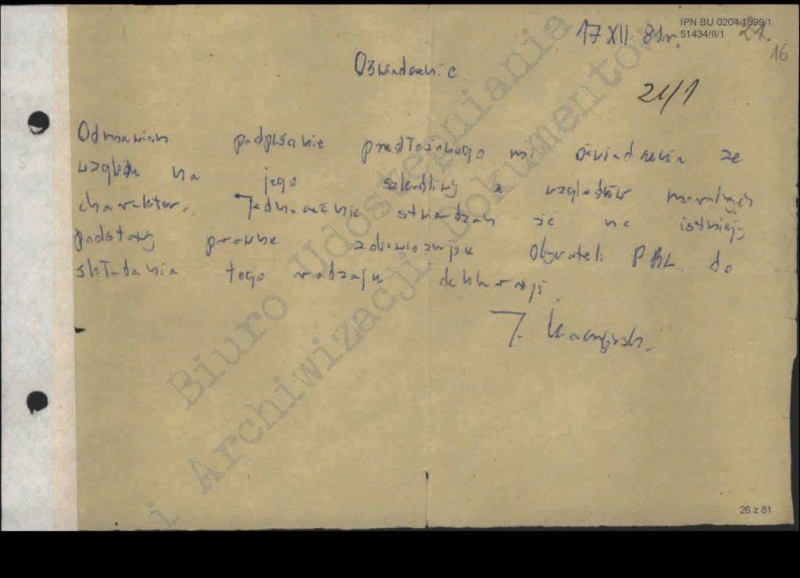 IPN BU 0204/1599/1
51434/II/1
17 XII 81r.
27.
16
Oświadczenie
21/1
Odmawiam podpisanie przedłożonego mi oświadczenia ze
względu na jego szkodliwy z względów moralnych
charakter. Jednocześnie stwierdzam że nie istnieją
podstawy prawne zobowiązujące Obywateli PRL do
składania tego rodzaju deklaracji
J. Kaczyński
Biuro Udostępniania
i Archiwizacji Dokumentów
26 z 81